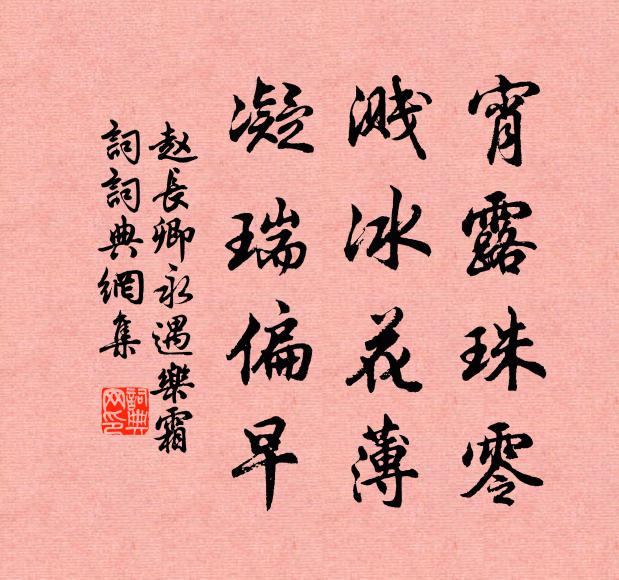 宵露珠零
溅冰花薄
凝瑞偏早
赵長卿永遇樂霜
詞詞典網集
詞典网印